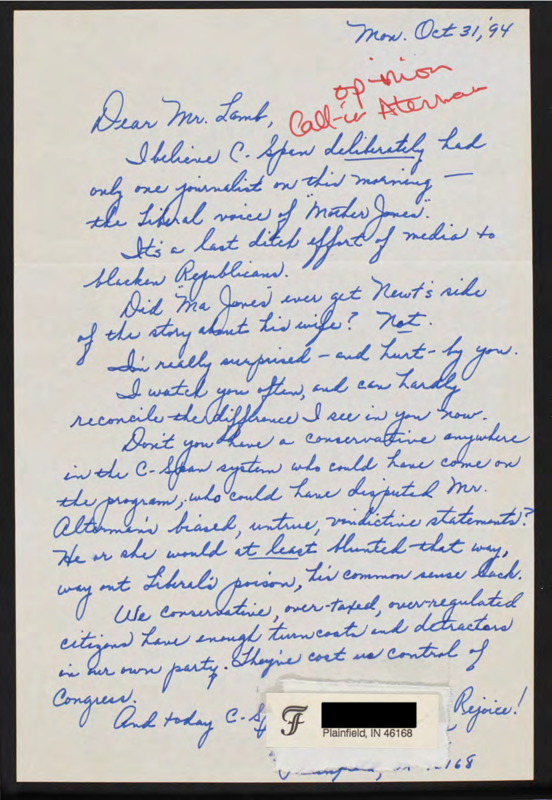 Mon. Oct 31, '94
opinion
Call-in Aterman
Dear Mr. Lamb,
I believe C-Span deliberately had
only one journalist on this morning —
the Liberal voice of "Mother Jones".
It's a last ditch effort of media to
blacken Republicans.
Did "Ma Jones" ever get Newt's side
of the story about his wife? Not.
I'm really surprised – and hurt – by you.
I watch you often, and can hardly
reconcile the difference I see in you now.
Don't you have a conservative anywhere
in the C-Span system who could have come on
the program, who could have disputed Mr.
Alterman's biased, untrue, vindictive statements?
He or she would at least blunted that way,
way out Liberal's poison, his common sense lack.
We conservative, over-taxed, over-regulated
citizens have enough turncoats and detractors
in our own party. They've cost us control of
Congress.
And today C-S Rejoice!
F
Plainfield, IN 46168
168